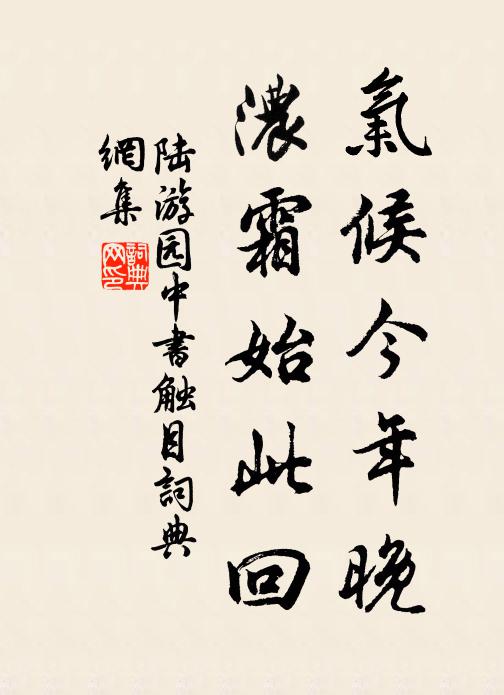 氣候今年晚
濃霜始此回
陆游园中書触目詞典
網集
詞典
网印